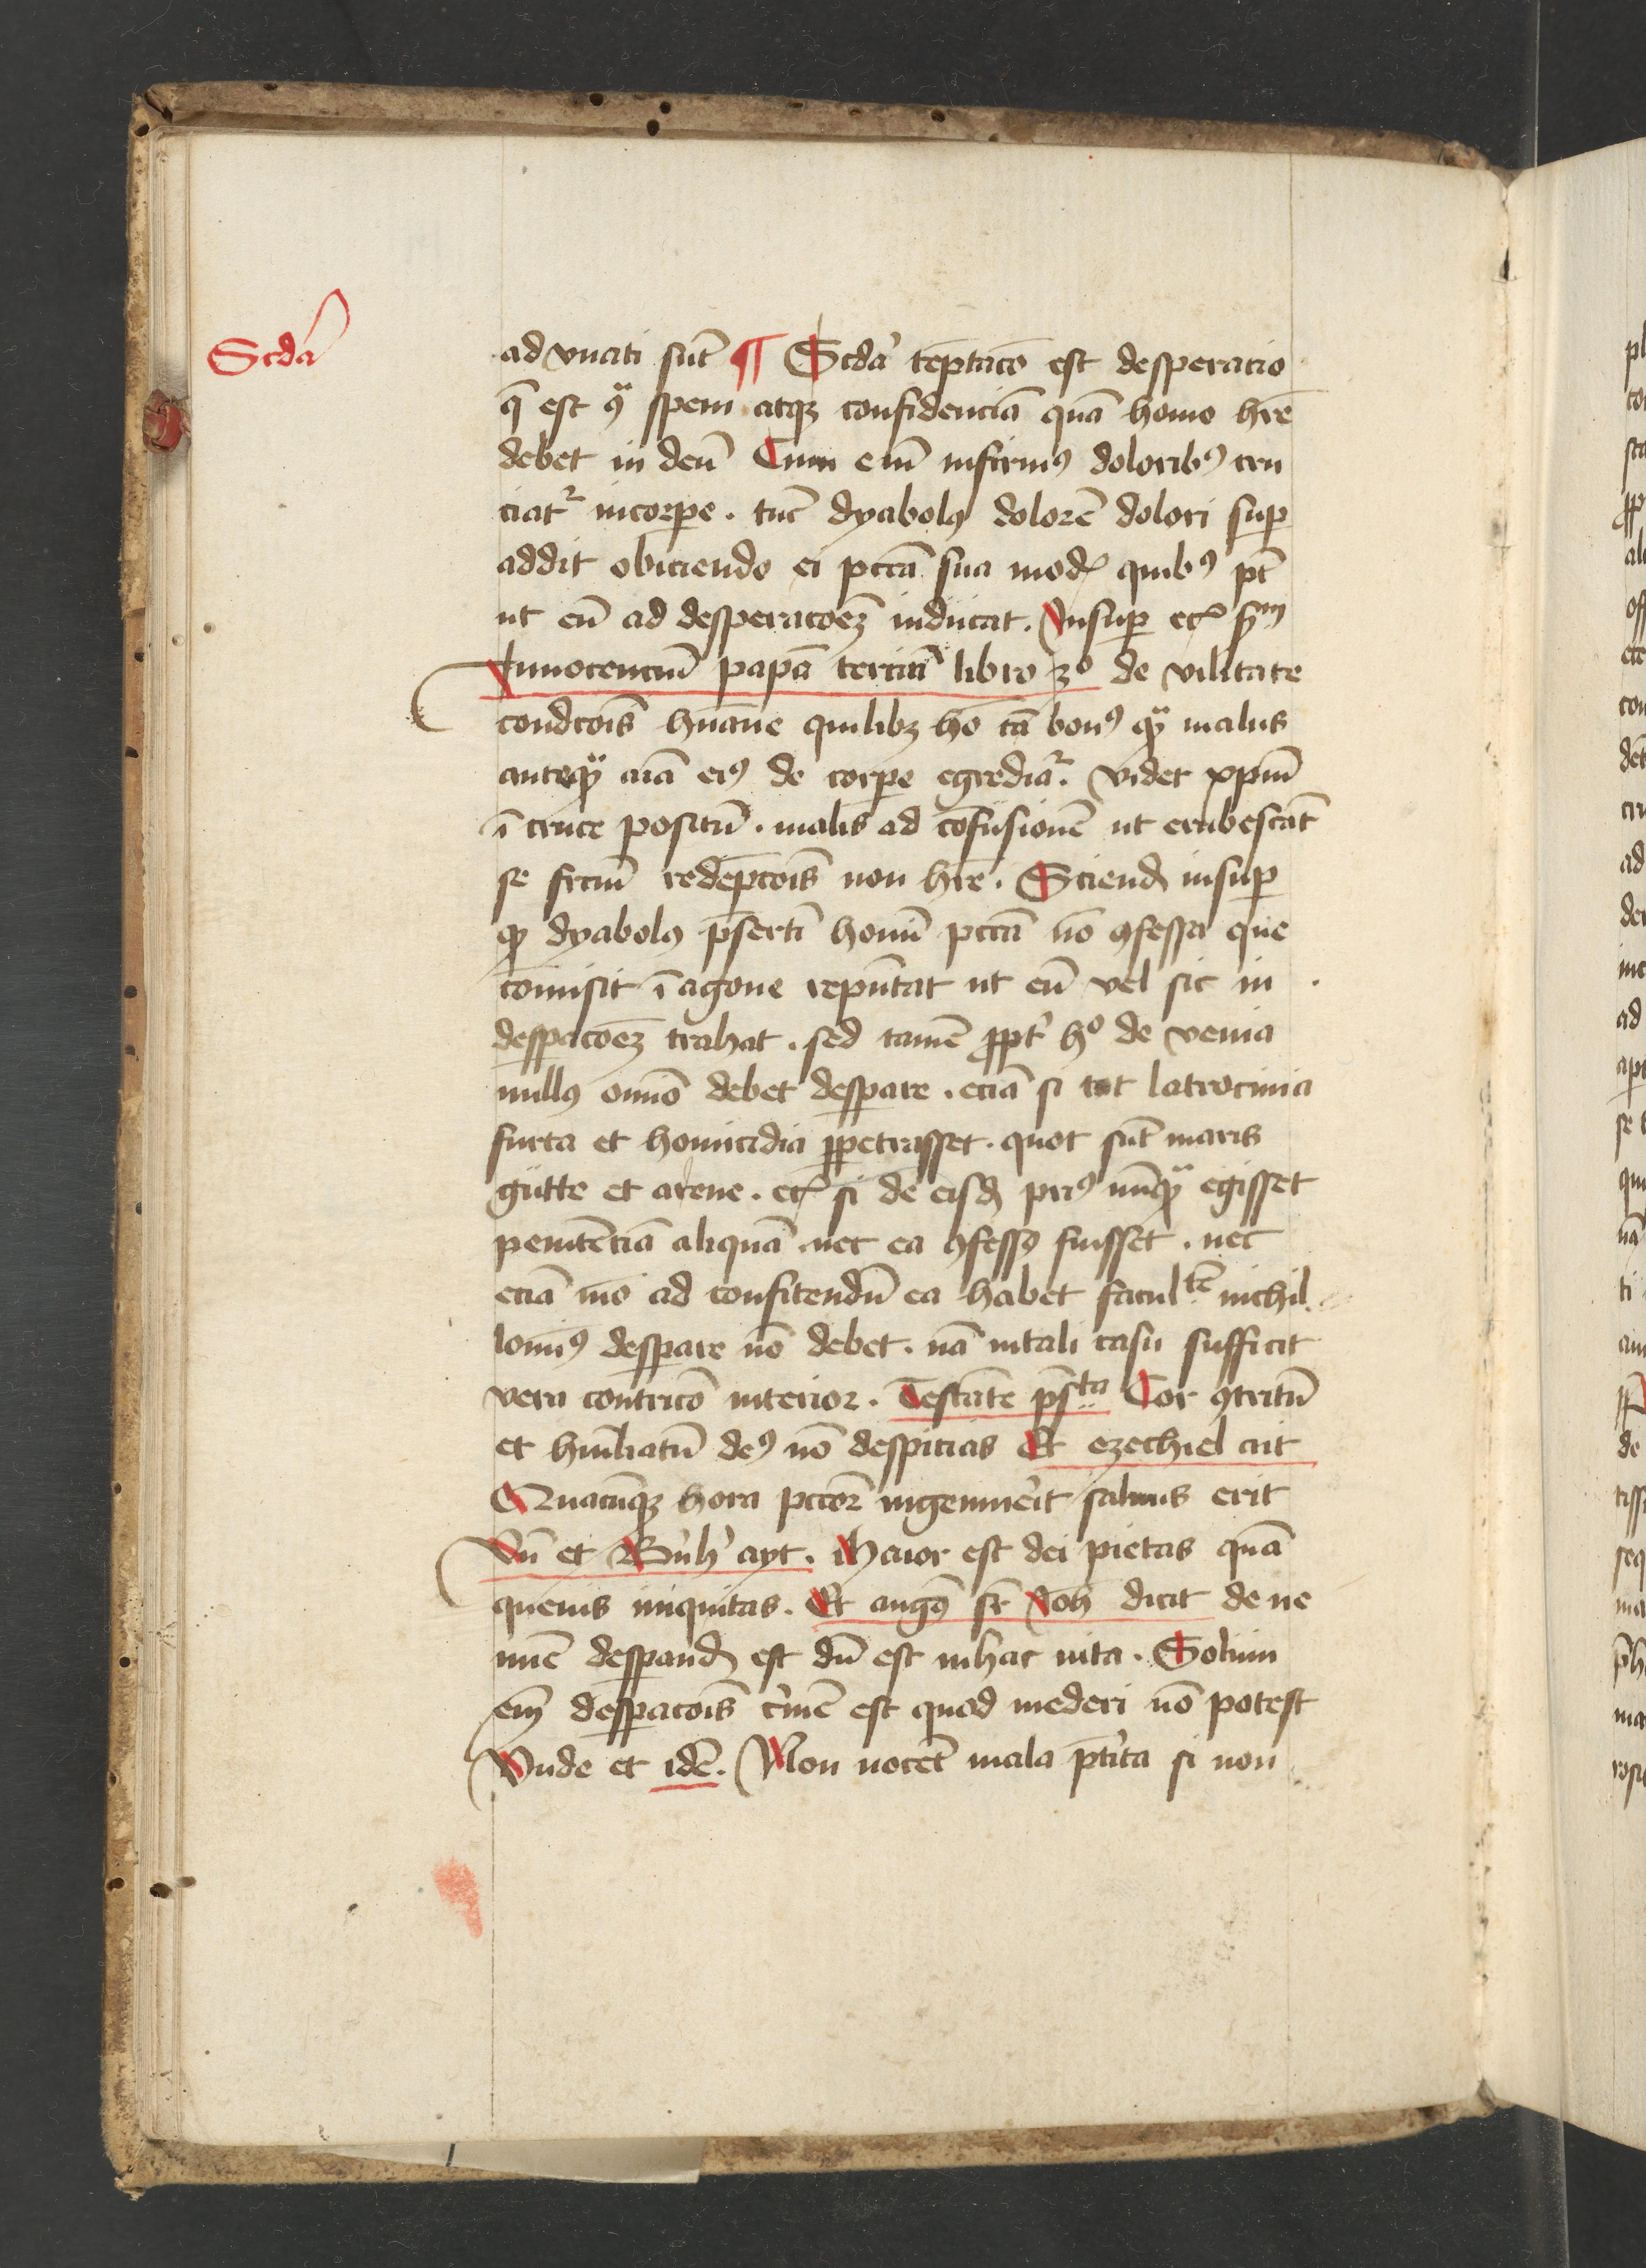 Scda
ad vnati sūt ¶ Scda tēptacō est desperacio
q̄ est ꝯᵃ spem atqꝫ confidenciā quā homo hrē
debet in deū Cum em̄ infirmꝰ doloribꝰ cru
ciatᷣ incorpe . tūc dyabolꝰ dolorē dolori suꝑ
addit obiciendo ei pccā sua modꝭ quibꝰ pt̄
ut eū ad desperacōeꝫ inducat . Insuꝑ ecꝭ sᵐ
Innocencium papā terciū libro 3º de vilitate
condicōis hūane quilibꝫ hō tā bonꝰ qᵃꝫ malus
anteqᵃꝫ aīa eiꝰ de corpe egrediatᷣ . videt xpm̄
ī cruce positū . malis ad cōfusionē ut erubescāt
se frctm̄ redēpcōis non hrē . Sciend insuꝑ
qꝫ dyabolꝰ p̄sertī homī pccā nō ꝯfessa que
cōmisit ī agone rep̄ntat ut eū vel sic in
desꝑacōeꝫ trahat . sed tamē ꝓpt̄ hº de venia
nullꝰ omnō debet desꝑare . eciā si tot latrocinia
furta et homicidia ꝑpetrasset . quot sūt maris
gutte et arene . ecꝭ si de eisdꝫ priꝰ nūqᵃꝫ egisset
penitēciā aliquā . nec ea ꝯfessꝰ fuisset . nec
eciā mō ad confitendū ea habet faculᵗē nichil
lominꝰ desꝑare nō debet . nā intali casu sufficit
vera contricō interior . Testāte ps̄ᵗᵃ Cor ꝯtritū
et hūiliatū deꝰ nō despicias Et ezechiel ait
Quacūqꝫ hora pccōr ingemuerit saluus erit
Vn̄ et Bern̄h ayt . Maior est dei pietas quā
queuis iniquitas . Et augꝰ sr̄ Joh̄ dicit de ne
mīe desꝑandꝫ est dū est inhac uita . Solum
em̄ desꝑacōis crīmē est quod mederi nō potest
Vnde et idē . Non nocēt mala ptīta si non